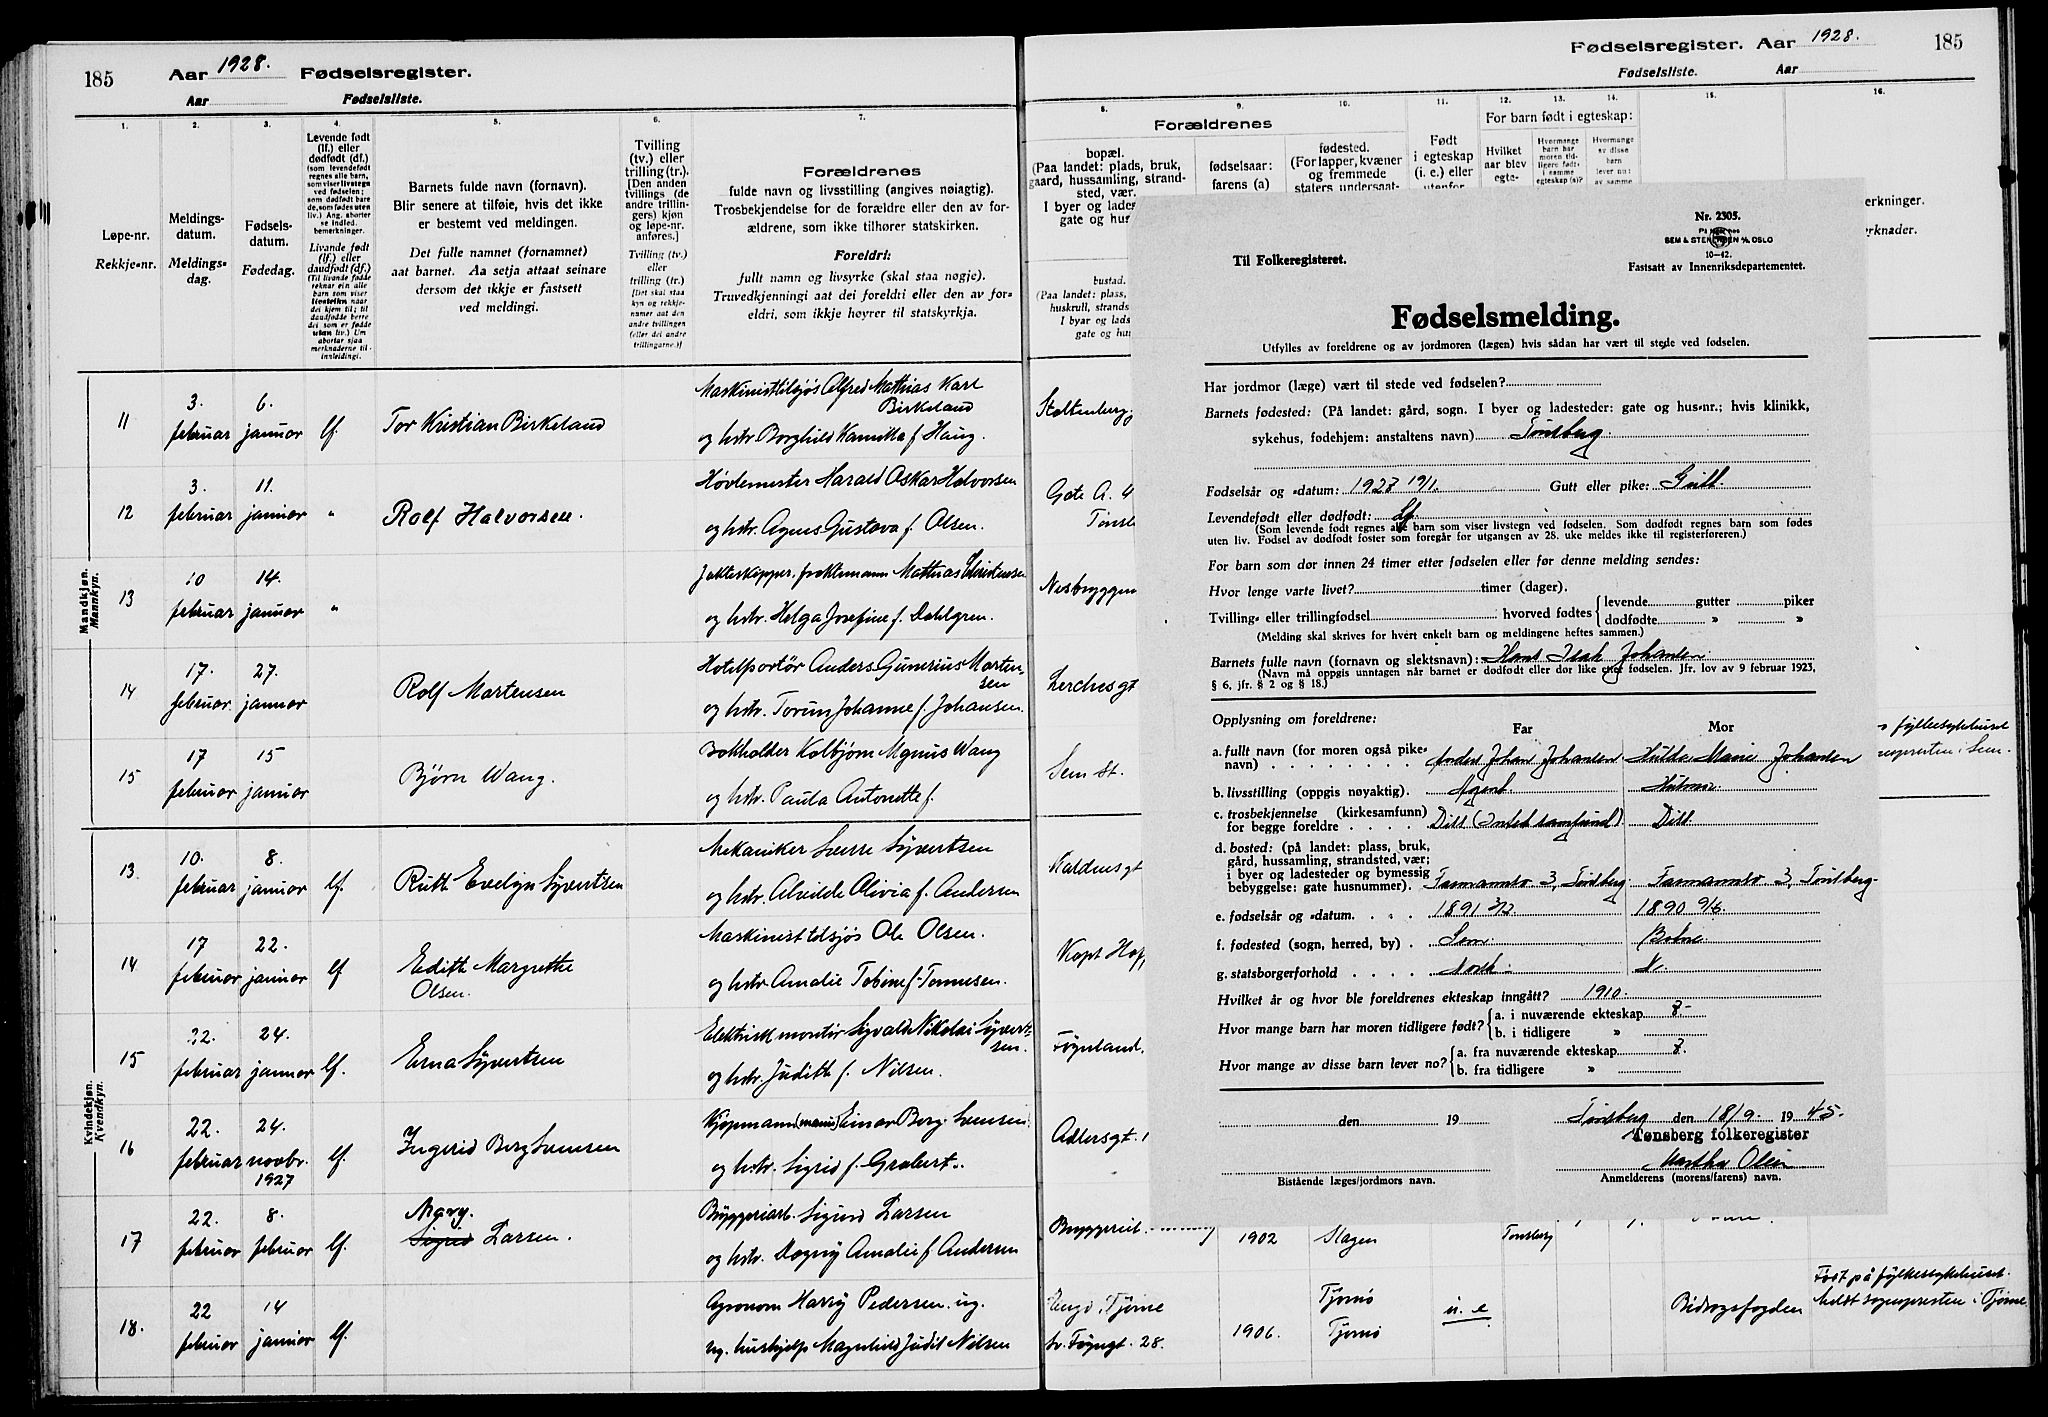 185
Aar 1928. Fødselsregister.
Aar Fødselsliste.
1.
2.
3.
4.
5.
6.
7.
Løpe-nr.
Rekkje-nr.
Meldings-
datum.
Meldings-
dag.
Fødsels-
datum.
Fødedag.
Levende født
(lf.) eller
dødfødt (df.)
(som levendefødt
regnes alle barn,
som viser livstegn
ved fødselen;
som dødfødt bare
de, som fødes uten
liv.) Ang. aborter
se indled.
bemerkninger.
Livande født
(lf.) eller
daudfødt (df.)
(Til livande fødde
reknar ein alle
barn som viser
livsteikn naar
dei kjem til; til
daudfødde berre
dei som er fødde
utan liv.) Um
abortar sjaa
merknaderne til
innleidingi.
Barnets fulde navn (fornavn).
Blir senere at tilføie, hvis det ikke
er bestemt ved meldingen.
Det fulle namnet (fornamnet)
aat barnet. Aa setja attaat seinare
dersom det ikkje er fastsett
ved meldingi.
Tvilling
(tv.) eller
trilling (tr.).
[Den anden
tvillings (de
andre trillin-
gers) kjøn
og løpe-nr.
anføres.]
Tvilling (tv.)
eller
trilling (tr.)
[Det skal staa
kyn og rekkje-
numer aat den
andre tvillingen
(eller dei andre
trillingarne.)]
Forældrenes
fulde navn og livsstilling (angives nøiagtig).
Trosbekjendelse for de forældre eller den av for-
ældrene, som ikke tilhører statskirken.
Foreldri:
fullt namn og livsyrke (skal staa nøgje).
Truvedkjenningi aat dei foreldri eller den av for-
eldri, som ikkje høyrer til statskyrkja.
Mandkjøn.
Mannkyn.
11 3. februar 6. januar lf. Tor Kristian Birkeland
Maskinist tilsjøs Alfred Mathias Karl
Birkeland
og hstr. Borghild Kamilla f. Haug.
12 3. februar 11. januar " Rolf Halvorsen.
Høvlemester Harald Oskar Halvorsen
og hstr. Agnes Gustava f. Olsen.
13 10 februar 14. januar "
Mathias Christensen
og hstr. Helga Josefine f. Dahlgren.
14 17. februar 27. januar Rolf Martensen
Hotelportør Anders Gunerius Marten-
sen
og hstr. Torun Johanne f. Johansen.
15 17 februar 15 januar Bjørn Wang.
Bokholder Kolbjørn Magnus Wang
og hstr. Paula Antonette f.
Kvindekjøn.
Kvendkyn.
13. 10. februar 8. januar lf. Ruth Evelyn Syvertsen
Mekaniker Sverre Syvertsen
og hstr. Alvilde Olivia f. Andersen
14 17 februar 22. januar lf Edith Margrethe
Olsen.
Maskinist tilsjøs Ole Olsen.
og hstr. Amalie Tobine f. Tønnesen.
15 22. februar 24. januar lf. Erna Syvertsen
Elektrisk montør Sigvald Nikolai Syvert-
sen.
og hstr. Judith f. Nilsen.
16 22. februar 24. novbr. 1927 lf. Ingerid Berg Svensen
Kjøpmann Einar Berg Svensen
og hstr. Sigrid f. Grabert.
17 22. februar 8. februar lf. Mary.
Sigrid Larsen.
Bryggeriarb. Sigurd Larsen
og hstr. Dagny Amalie f. Andersen
18. 22 februar 14 januar lf.
Agronom Harry Pedersen. ug.
ug. hushjelp Magnhild Judit Nilsen
Fødselsregister. Aar 1928. 185
Fødselsliste. Aar
8.
9.
10.
11.
12.
13.
14.
15.
16.
Forældrenes
For barn født i egteskap:
bopæl.
(Paa landet: plads, bruk,
gaard, hussamling, strand-
sted, vær.
I byer og lades
gate og hus
bustad.
(Paa landet: plass,
huskrull, strands
I byar og lads
gate og hus
fødselsaar:
farens (a)
fødested.
(For lapper, kvæner
og fremmede
staters undersaat-
Født
i egteskap
(i. e.) eller
utenfor
Hvilket
aar blev
egte-
Hvormange
barn har
moren tid-
ligere født
i samme
egteskap (a)?
Hvormange
av disse
barn
lever nu:
av samme
erkninger.
rknader.
Stoltenbergg
Gate A. 4
Tønsb
Nesbryggen
Lerchesgt
Sem st.
Kaldnesgt
Kapt Hop
Føynland.
Adlersgt. 1
fylkesykehuset
sognepresten i Sem.
Til Folkeregisteret.
Nr. 2305.
SEM & STENERSEN A/S OSLO
10—42.
Fastsatt av Innenriksdepartementet.
Fødselsmelding.
Utfylles av foreldrene og av jordmoren (lægen) hvis sådan har vært til stede ved fødselen.
Har jordmor (læge) vært til stede ved fødselen?
Barnets fødested: (På landet: gård, sogn. I byer og ladesteder: gate og hus-nr.; hvis klinikk,
sykehus, fødehjem: anstaltens navn) Tønsberg.
Fødselsår og -datum: 1928 19/1. Gutt eller pike: Gutt.
Levendefødt eller dødfødt: Lf.
(Som levende født regnes alle barn som viser livstegn ved fødselen. Som dødfødt regnes barn som fødes
uten liv. Fødsel av dødfødt foster som foregår før utgangen av 28. uke meldes ikke til registerføreren.)
For barn som dør innen 24 timer etter fødselen eller før denne melding sendes:
Hvor lenge varte livet? timer (dager).
Tvilling- eller trillingfødsel hvorved fødtes levende gutter piker
dødfødte » »
(Melding skal skrives for hvert enkelt barn og meldingene heftes sammen.)
Barnets fulle navn (fornavn og slektsnavn): Hans Isak Johansen.
(Navn må oppgis unntagen når barnet er dødfødt eller dør like etter fødselen. Jfr. lov av 9 februar 1923,
§ 6, jfr. § 2 og § 18.)
Opplysning om foreldrene: Far Mor
a. fullt navn (for moren også pike-
navn) Anders Johan Johansen Hulda Marie Johansen
b. livsstilling (oppgis nøyaktig). Agent. Husmor
c. trosbekjennelse (kirkesamfunn)
for begge foreldre Diss (Intet samfund) Diss
d. bosted: (på landet: plass, bruk,
gård, hussamling, strandsted, vær;
i byer og ladesteder og bymessig
bebyggelse: gate husnummer). Farmannsv 3, Tønsberg. Farmannsv 3, Tønsberg.
e. fødselsår og -datum. 1891 3/2. 1890 9/6.
f. fødested (sogn, herred, by) Sem. Botne.
g. statsborgerforhold Norsk. N.
Hvilket år og hvor ble foreldrenes ekteskap inngått? 1910.
Hvor mange barn har moren tidligere født? a. i nuværende ekteskap 8-
b. i tidligere »
Hvor mange av disse barn lever no? a. fra nuværende ekteskap 8.
b. fra tidligere »
den 19
Tønsberg den 18/9. 19 45.
Tønsberg folkeregister
Martha Olsen
Bistående læges/jordmors navn.
Anmelderens (morens/farens) navn.
1902 Slagen Tønsberg
Engø, Tjøme Tjømø u. e
Bidragsfogden
Født på fylkessykehuset.
Meldt sognepresten i Tjøme
sv. Føyngt. 28. 1906. Tjømø